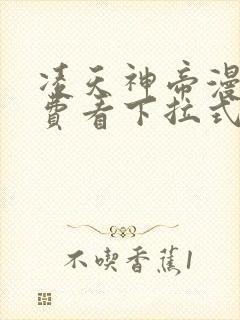 凌天神帝漫
费看下拉式
不喫香蕉1